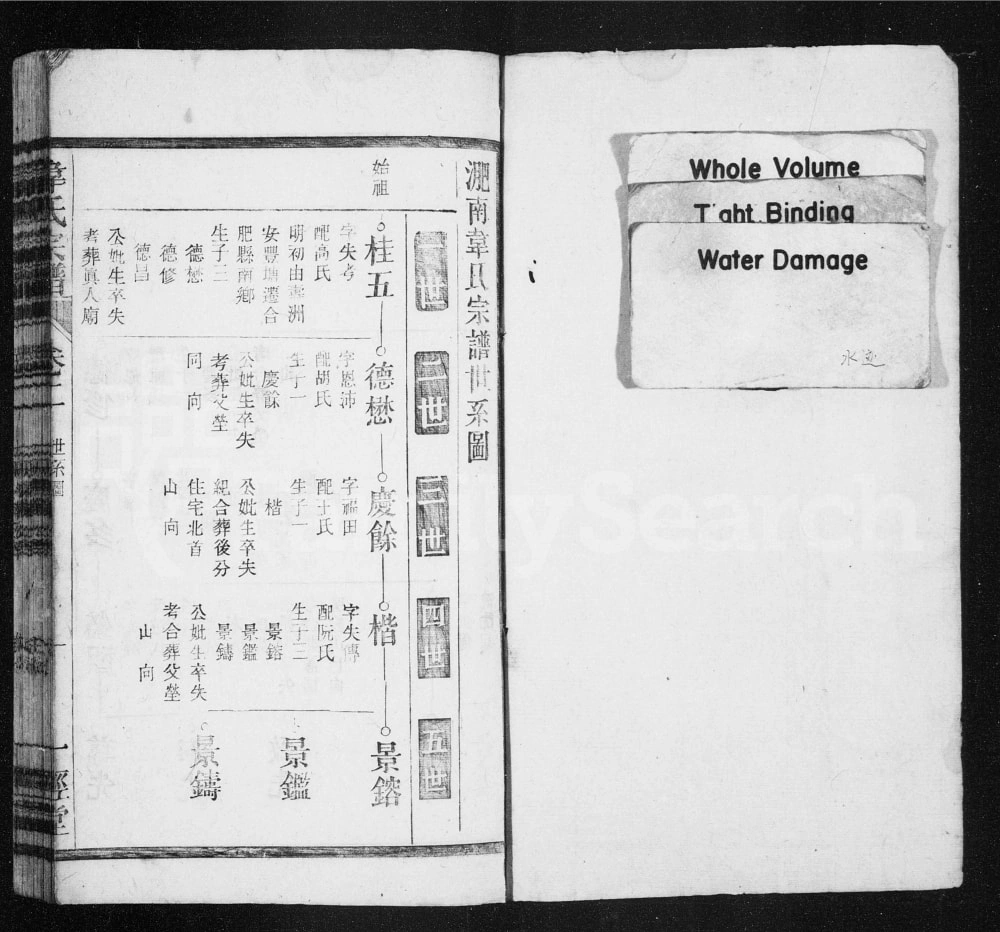 Whole Volume
Tight Binding
Water Damage
水迹
淝南韋氏宗譜世系圖
一世
二世
三世
四世
五世
始祖
桂五
字失考
配高氏
明初由壽洲
安豐塘遷合
肥縣南鄉
生子三
德懋
德修
德昌
公妣生卒失
考葬真人廟
德懋
字恩沛
配胡氏
生子一
慶餘
公妣生卒失
考葬父塋
同向
慶餘
字福田
配王氏
生子一
楷
公妣生卒失
紀合葬後分
住宅北首
山向
楷
字失傳
配阮氏
生子三
景鎔
景鑑
景鑄
公妣生卒失
考合葬父塋
山向
景鎔
景鑑
景鑄
韋氏宗譜
世系圖
一經堂
FamilySearch